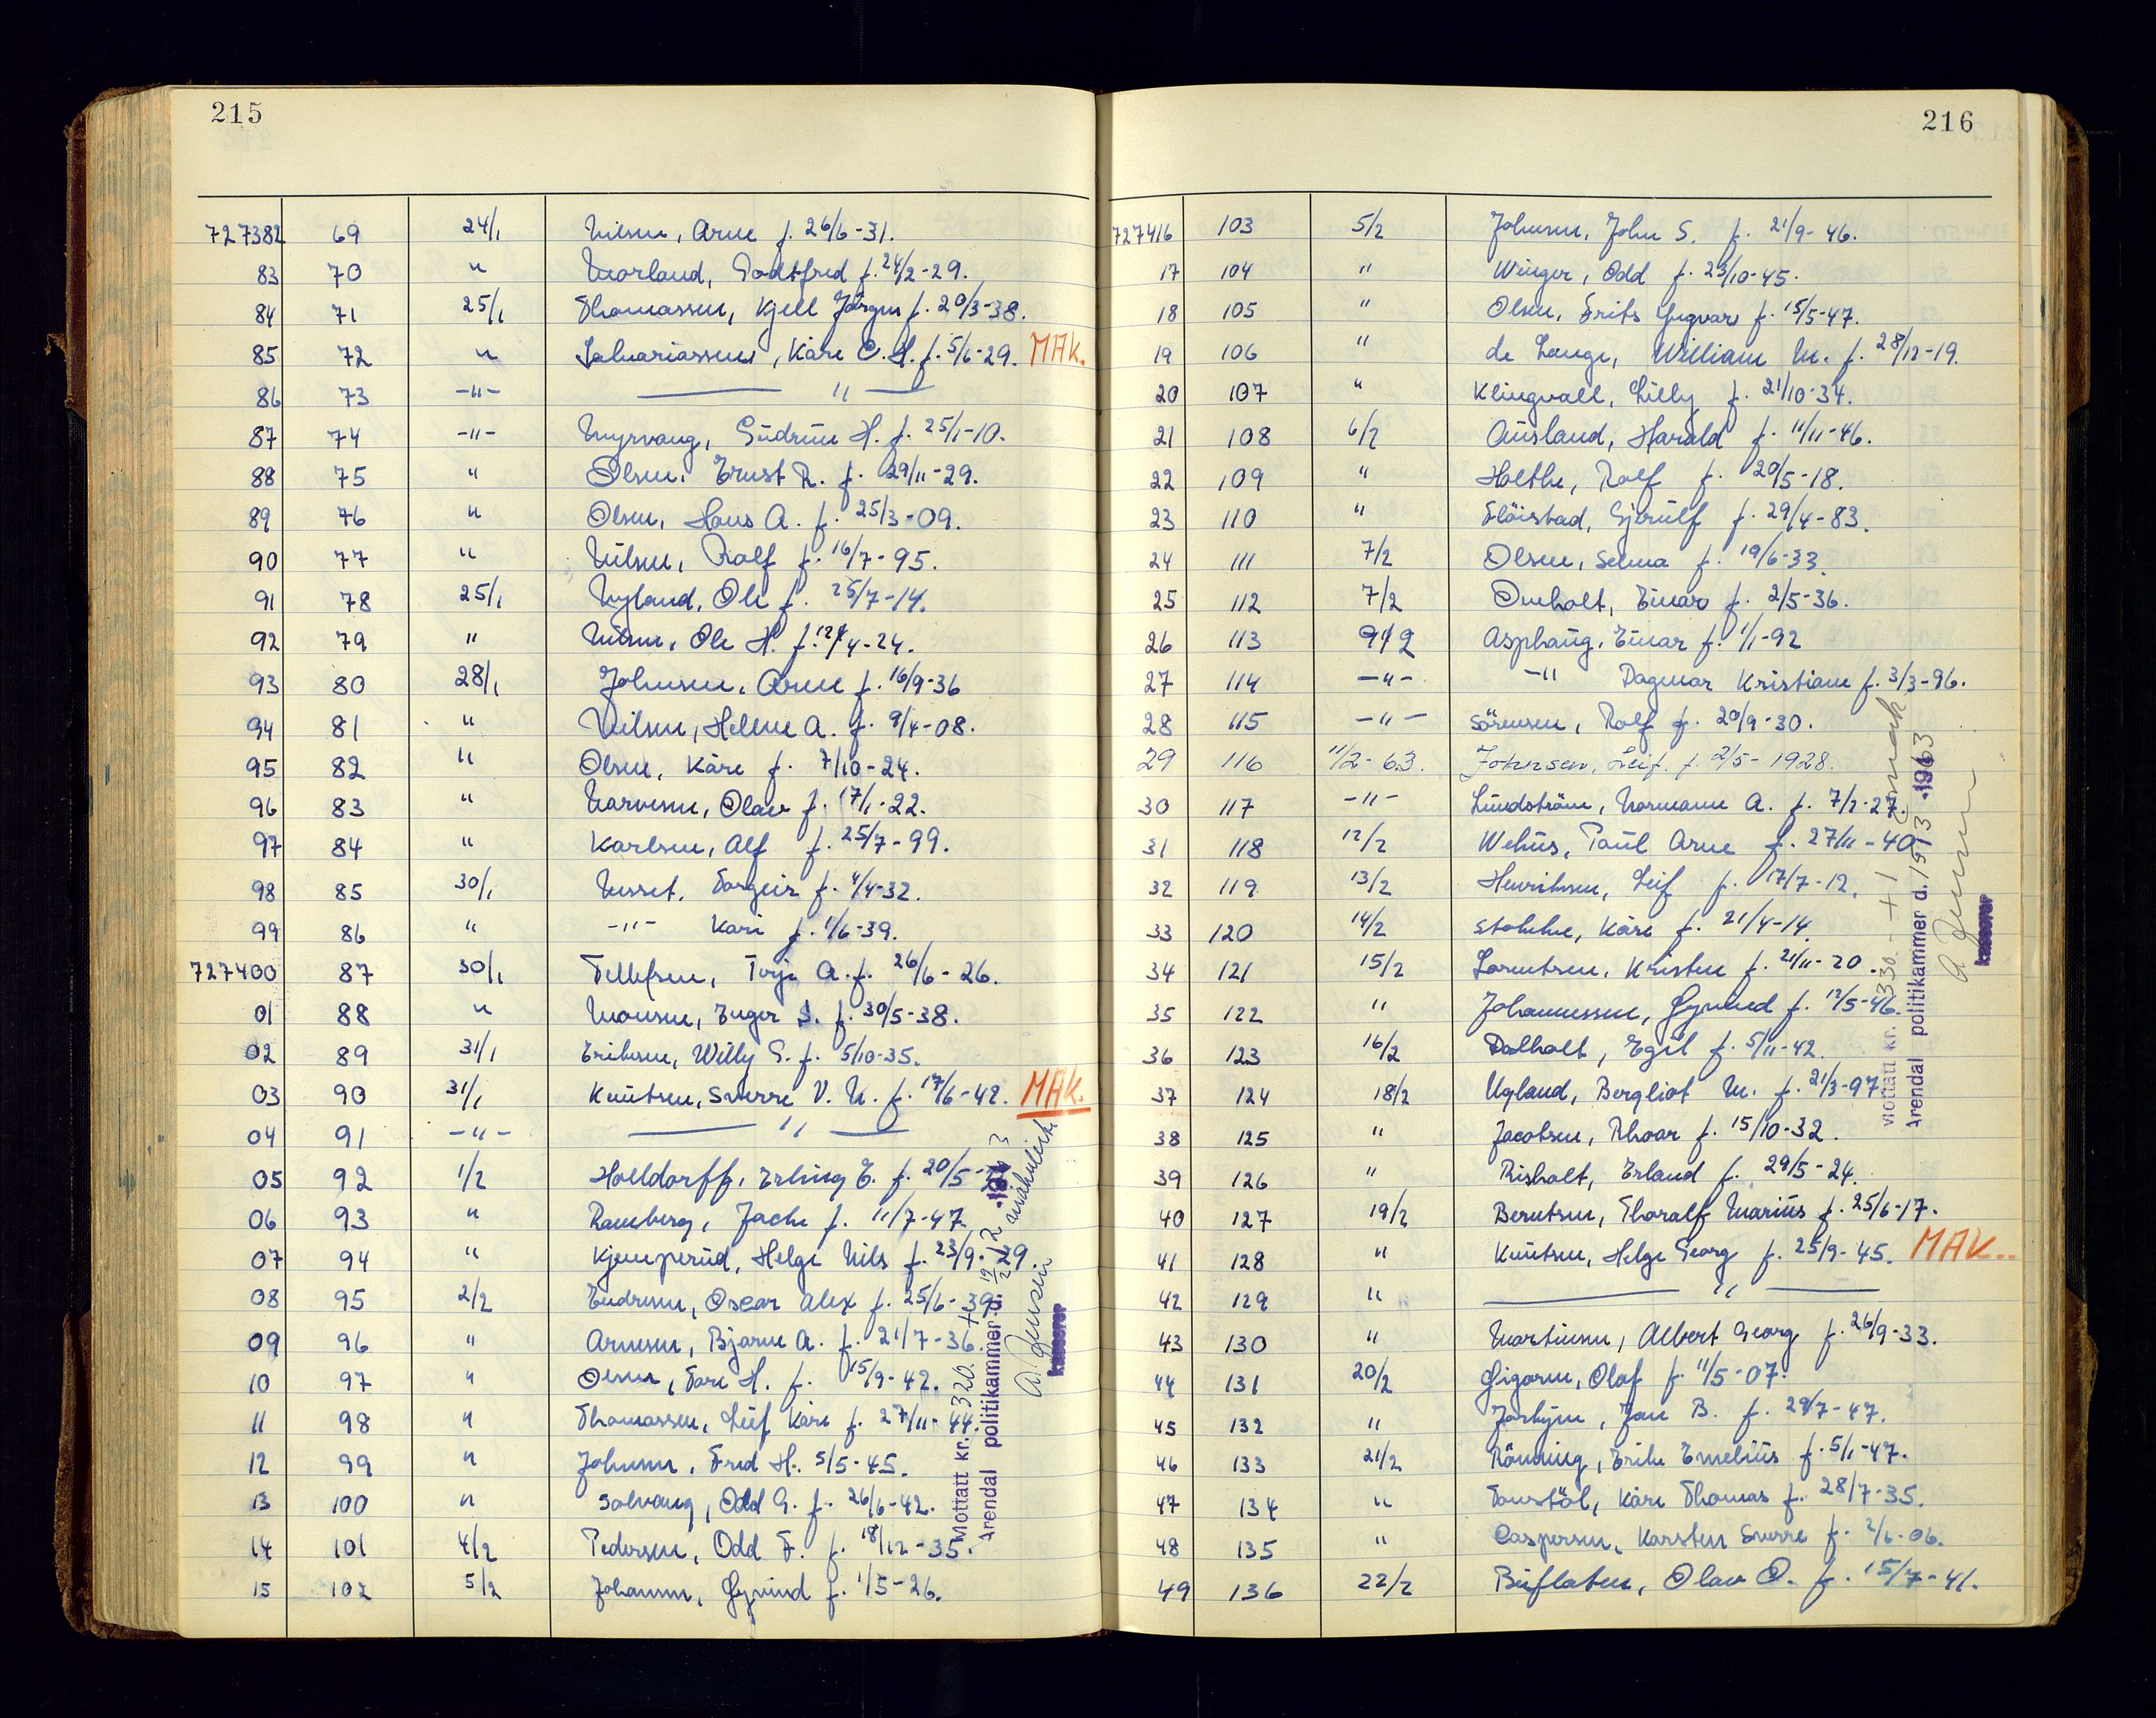 215
727382 69 24/1 Nilsen, Arne f. 26/6-31.
83 70 " Morland, Godtfred f. 24/2-29.
84 71 25/1 Thomassen, Kjell Jörgen f. 20/3-38.
85 72 " Zakariassen, Kåre C. H. f. 5/6-29. MAK.
86 73 -"- — " —
87 74 -"- Myrvang, Gudrun H. f. 25/1-10.
88 75 " Olsen, Ernst R. f. 29/11-29.
89 76 " Olsen, Hans A. f. 25/3-09.
90 77 " Nilsen, Rolf f. 16/7-95.
91 78 25/1 Nyland, Ole f. 25/7-14.
92 79 " Nilsen, Ole H. f. 12/4-24.
93 80 28/1 Johnsen, Arne f. 16/9-36
94 81 " Nilsen, Helene A. f. 9/4-08.
95 82 " Olsen, Kåre f. 7/10-24.
96 83 " Narvesen, Olav f. 17/1-22.
97 84 " Karlsen, Alf f. 25/7-99.
98 85 30/1 Nesset, Torgeir f. 4/4-32.
99 86 " -"- Kari f. 1/6-39.
727400 87 30/1 Tellefsen, Terje A. f. 26/6-26.
01 88 " Monsen, Inger S. f. 30/5-38.
02 89 31/1 Eriksen, Willy G. f. 5/10-35.
03 90 31/1 Knutsen, Sverre V. N. f. 17/6-42. MAK.
04 91 -"- — " —
05 92 1/2 Holldorff, Erling E. f. 20/5-
06 93 " Ramberg, Jack f. 11/7-47
07 94 " Kjemperud, Helge Nils f. 23/9-29.
08 95 2/2 Endresen, Oscar Alex f. 25/6-39
09 96 " Arnesen, Bjarne A. f. 21/7-36.
10 97 " Olsen, Tore H. f. 15/9-42.
11 98 " Thomassen, Leif Kåre f. 27/11-44.
12 99 " Johnsen, Fred H. 5/5-45.
13 100 " Solvang, Odd G. f. 26/6-42.
14 101 4/2 Pedersen, Odd F. f. 18/12-35.
15 102 5/2 Johansen, Gyvind f. 1/5-26.
Mottatt kr. 320.
Arendal politikammer d. 19/2
A. Jensen
kasserer
216
727416 103 5/2 Johnsen, John S. f. 21/9-46.
17 104 " Winger, Odd f. 23/10-45.
18 105 " Olsen, Frits Yngvar f. 15/5-47.
19 106 " de Lange, William M. f. 28/12-19.
20 107 " Klingvall, Lilly f. 21/10-34.
21 108 6/2 Ausland, Harald f. 11/11-46.
22 109 " Holthe, Rolf f. 20/5-18.
23 110 " Flöistad, Gjerulf f. 29/4-83.
24 111 7/2 Olsen, Selma f. 19/6-33.
25 112 7/2 Omholt, Einar f. 2/5-36.
26 113 9/2 Asphaug, Einar f. 1/1-92
27 114 -"- -"- Dagmar Kristiane f. 3/3-96.
28 115 -"- Sörensen, Rolf f. 20/9-30.
29 116 11/2-63. Johnsen, Leif. f. 2/5-1928.
30 117 -"- Lindström, Normann A. f. 7/2-27.
31 118 12/2 Wehus, Paul Arne f. 27/11-40
32 119 13/2 Henriksen, Leif f. 17/7-12.
33 120 14/2 Stokke, Kåre f. 21/4-14.
34 121 15/2 Lorentsen, Kristen f. 21/11-20.
35 122 " Johannessen, Gyvind f. 12/5-46.
36 123 16/2 Dalholt, Egil f. 5/11-42.
37 124 18/2 Ugland, Bergliot M. f. 21/3-97
38 125 " Jacobsen, Rhoar f. 15/10-32.
39 126 " Risholt, Erland f. 29/5-24.
40 127 19/2 Berntsen, Thoralf Marius f. 25/6-17.
41 128 " Knutsen, Helge Georg f. 25/9-45. MAK..
42 129 " — " —
43 130 " Martinsen, Albert Georg f. 26/9-33.
44 131 20/2 Gigaren, Olaf f. 11/5-07.
45 132 " Jan B. f. 29/7-47.
46 133 21/2 Rönning, Erik Emelius f. 5/1-47.
47 134 " Tonstöl, Kåre Thomas f. 28/7-35.
48 135 " Caspersen, Karsten Sverre f. 2/6-06.
49 136 22/2 Buflaten, Olav O. f. 15/7-41.
Mottatt kr. 330.- + 1
Arendal politikammer d. 19/3 1963
A. Jensen
kasserer